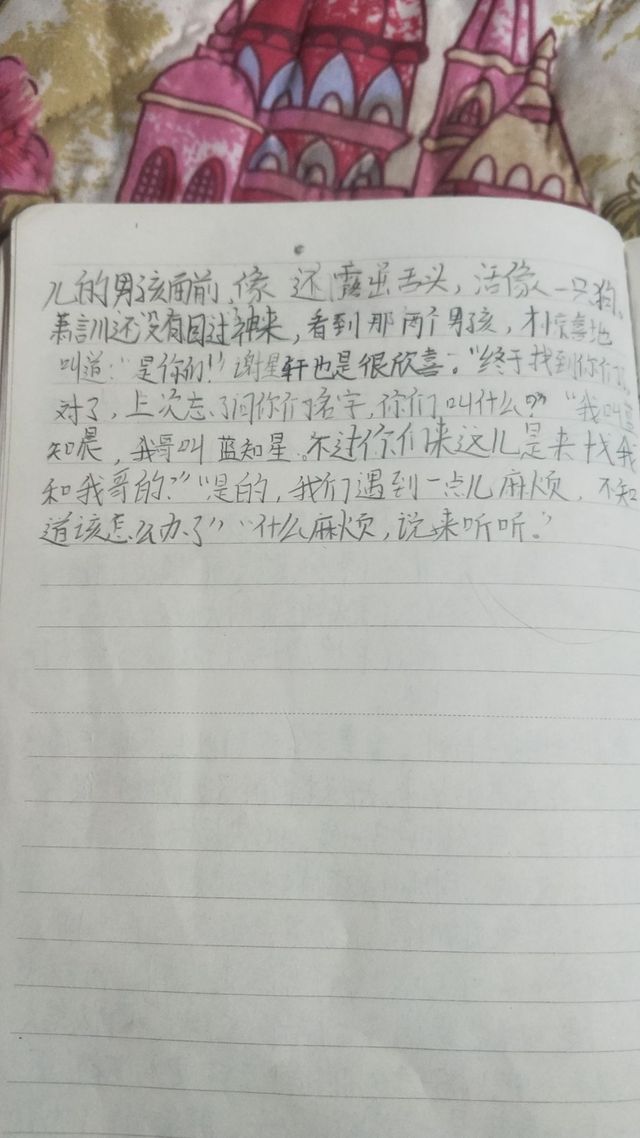 儿的男孩面前,像 还露出舌头,活像一只狗。
萧訓还没有回过神来,看到那两个男孩,才惊喜地
叫道:“是你们!”谢星轩也是很欣喜:“终于找到你们了。
对了,上次忘了问你们名字,你们叫什么?”“我叫蓝
知晨,我哥叫蓝知星。不过你们来这儿是来找我
和我哥的?”“是的,我们遇到一点儿麻烦,不知
道该怎么办了”“什么麻烦,说来听听。”